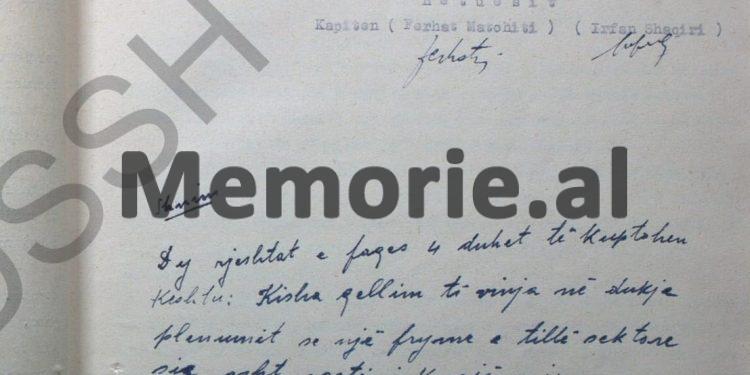 Hetuesit
Kapiten ( Ferhat Matohiti ) ( Irfan Shaqiri )
Memorie.al
DSSH
Shenim
Dy rjeshtat e fages 4 duhet të kuptohen
Keshtu: Kisha qellim të vinja në dukje
plenumit se një fryme e tillë sektore